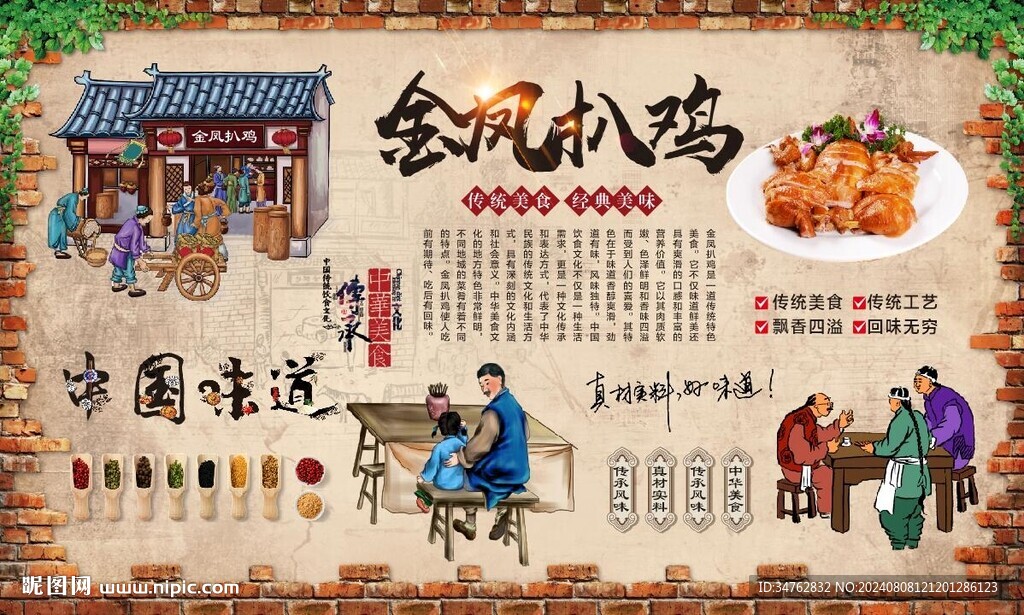 金凤扒鸡
金凤扒鸡
传统美食 经典美味
金凤扒鸡是一道传统特色
美食。它不仅味道鲜美还
具有爽滑的口感和丰富的
营养价值。它以其肉质软
嫩、色泽鲜明和香味四溢
而受到人们的喜爱。其特
色在于味道香醇爽滑，劲
道有味，风味独特。中国
饮食文化不仅是一种生活
需求，更是一种文化传承
和表达方式，代表了中华
民族的传统文化和生活方
式，具有深刻的文化内涵
和社会意义。中华美食文
化的地方特色非常鲜明，
不同地域的菜肴有着不同
的特点。金凤扒鸡使人吃
前有期待、吃后有回味。
传统美食 传统工艺
飘香四溢 回味无穷
中国传统饮食文化
传承
中華美食
文化
中国味道
真材实料,好味道!
传承风味
真材实料
传承风味
中华美食
昵图网 www.nipic.com
ID:34762832 NO:20240808121201286123